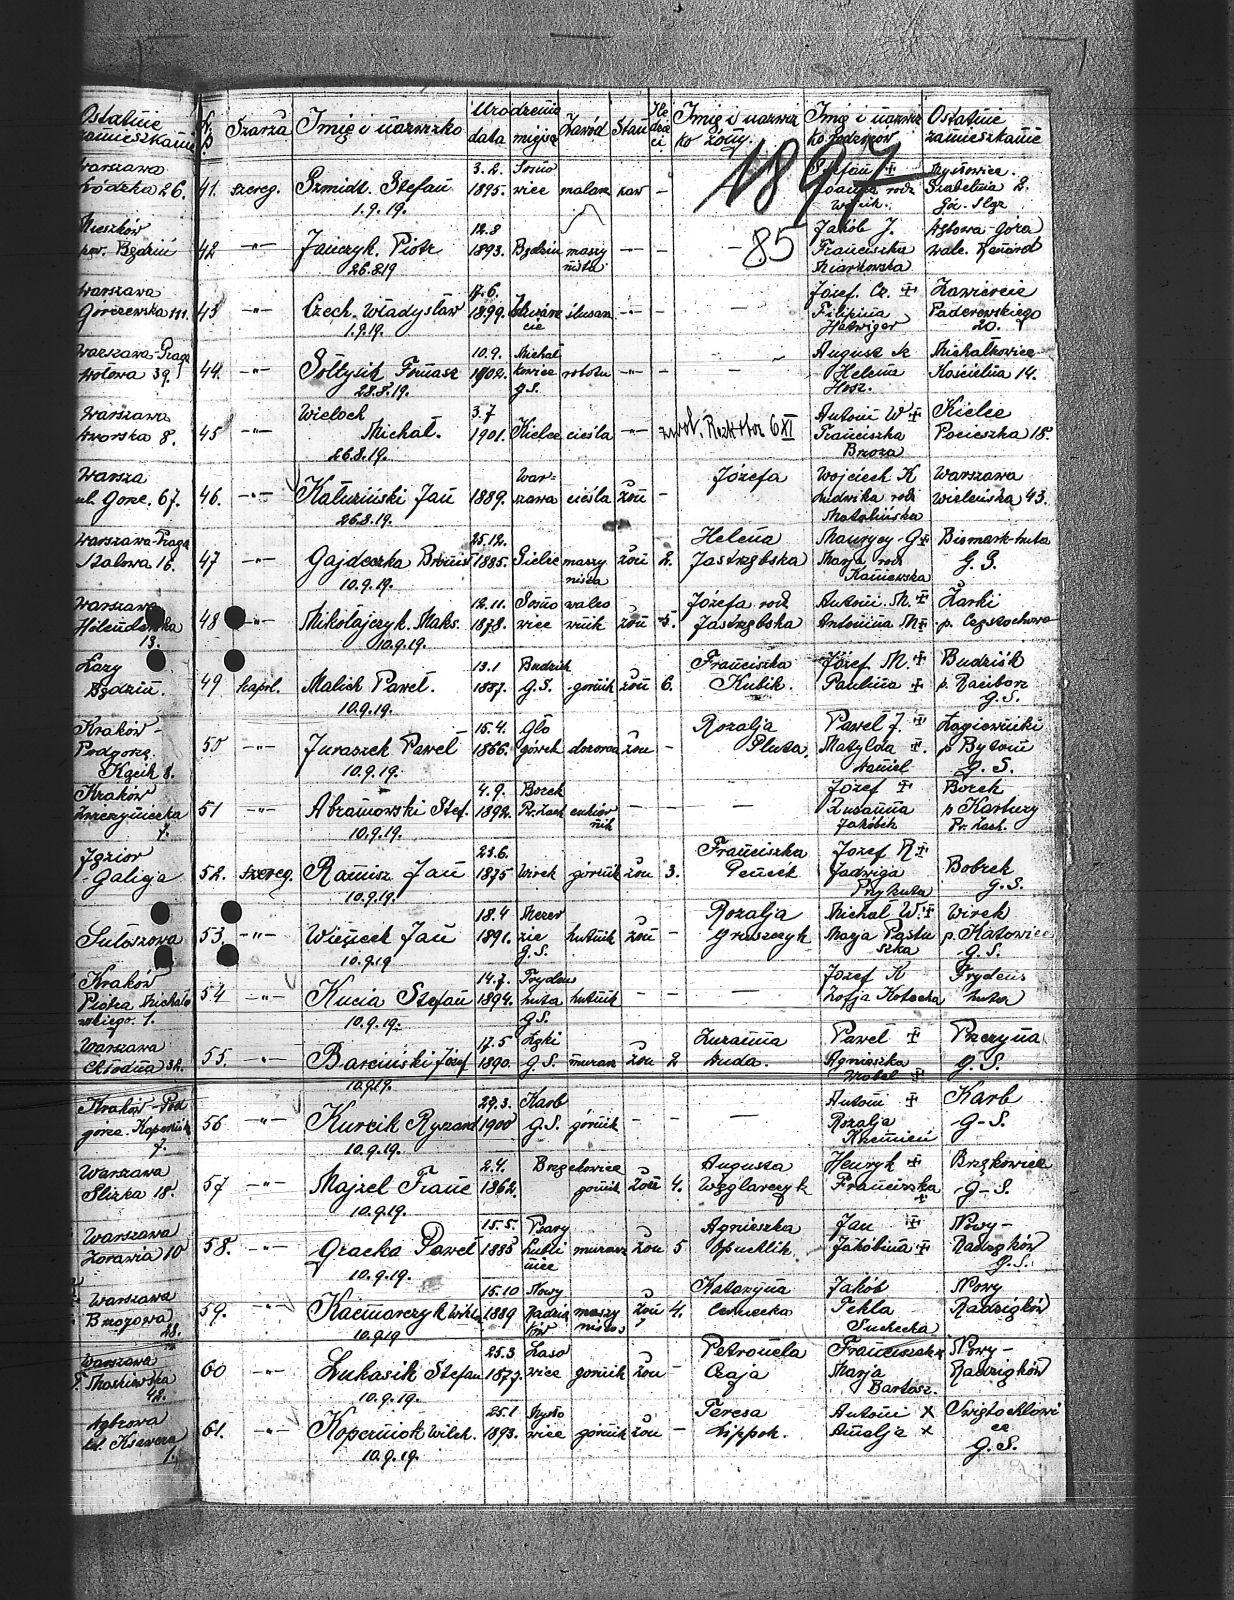 Ostatnie zamieszkanie
Warszawa
Łódzka 26.
Mieszków
pow. Będzin
Warszawa
Górczewska 111.
Warszawa-Praga
Wolowa 39.
Warszawa
Dworska 8.
Warsza
ul. Górc. 67.
Warszawa-Praga
Stalowa 16.
Warszawa
Holenderska
13.
Łazy
Będzin.
Kraków-
Podgórze
Kącik 8.
Kraków
Zwierzyniecka
7.
Galicja
Sułoszowa
Kraków
Piotra Michało
wskiego 1.
Warszawa
Chłodna 32.
Kraków-Pod
górze. Kopernik
7.
Warszawa
Śliska 18.
Warszawa
Żórawia 10
Warszawa
Brzozowa
28.
Warszawa
Moskiewska
42.
Dąbrowa
ul. Ksawera
1.
L. p. Szarża Imię i nazwisko Urodzenia data miejsce Zawód Stan Ile dzieci Imię i nazwisko żony. Imię i nazwisko rodziców Ostatnie zamieszkanie
1897
85
41. szereg. Szmidt. Stefan 3.2. 1895. Sosnowice malarz kaw - Stefan + Joanna rodz Wójcik. Mysłowice. Szabelnia 2. Gór. Sląz
1.9.19.
42 -"- Jańczyk. Piotr 12.8 1893. Będzin maszynista -"- - Jakób J. Franciszka Miarkowska Dąbowa-góra walc. Renard
26.8.19
43 -"- Czech. Władysław 7.6. 1899. Zawiercie ślusarz -"- - Józef. Cz. + Filipina Hatwiger Zawiercie Paderewskiego 20.
1.9.19.
44. -"- Sołtysik Tomasz 10.9. 1902. Michałkowice G.S. robotn -"- - - August Helena Michałkowice Kościelna 14.
28.8.19.
45 -"- Wieloch Michał. 3.7 1901. Kielce cieśla -"- zwol. 6 XI Antoni W + Franciszka Brzoza Kielce Pocieszka 18.
26.8.19.
46. -"- Kałuziński Jan 1889. Warszawa cieśla żon - Józefa Wojciech K Ludwika rodz Matalińska Warszawa Wileńska 43.
26.8.19.
47 -"- Gajdeczka Bronis 25.12. 1885. Sielce maszynista żon 2. Helena Jastrzębska Maurycy G + Marja rodz Kaniewska Bismark-huta G.S.
10.9.19.
48 -"- Mikołajczyk. Maks. 12.11. 1878. Sosnowice walcownik żon 5. Józefa rodz Jastrzębska Antoni. M. + Antonina M + Żarki p. Częstochowa
10.9.19.
49 kaprl. Malich Paweł. 13.1 1887. G.S. górnik żon 6. Franciszka Kubik. Józef. M. + Paulina + Budzisk p. Racibórz G.S.
10.9.19.
50 -"- Juraszek Paweł 15.4. 1866. Głogówek dozorca żon - Rozalja Pluta. Paweł J. + Matylda +. Daniel Łagiewniki p Bytom G.S.
10.9.19.
51 -"- Abramowski Stef. 4.9. 1892. Borek Pr. Zach cukiernik - - Józef + Zuzanna Jakóbek Borek p Kartuzy Pr. Zach.
10.9.19.
52. szereg. Ramisz Jan 23.6. 1875 Wirek górnik żon 3. Franciszka Józef R + Jadwiga Bobrek G.S.
10.9.19.
53. -"- Wieńcek Jan 18.4 1891. G.S. hutnik żon - Rozalja Groszczyk Michał W. + Marja Pastuszka Wirek p. Katowice G.S.
10.9.19
54 -"- Kucia Stefan 14.7. 1894. Frydenshuta G.S. hutnik - - Józef K Zofja Kotecka Frydenshuta
10.9.19.
55. -"- Barciński Józef 17.5 1890. G.S. murarz żon 2 Zuzanna Duda. Paweł + Agnieszka Wróbel + Przczyna G.S.
10.9.19.
56 -"- Kurcik Ryszard 29.3. 1900 Karb G.S. górnik - - Antoni + Rozalja Krzemień Karb G-S.
10.9.19.
57 -"- Majzel Franc 2.4. 1862. Brzękowice górnik żon 4. Augusta Węglarczyk Henryk + Franciszka + Brzękowice G-S.
10.9.19.
58. -"- Gracka Paweł 15.5. 1885 Psary Lubliniec murarz żon 5 Agnieszka Spuchlik. Jan + Jakóbina + Nowy-Radzięków G.S.
10.9.19.
59. -"- Kaczmarczyk Wikto 15.10 1889 Nowy Radzięków maszynista żon 4. Katarzyna Jakób Tekla Suchecka Nowy Radzięków
10.9.19
60 -"- Łukasik Stefan 25.3 1879. górnik żon - Petronela Czaja Franciszek Marja Bartosz. Nowy-Radzięków
10.9.19.
61. -"- Kopernok Wilch. 25.1 1893. Mysłowice górnik żon - Teresa Lippok. Antoni x Amalja x Świętochłowice G.S.
10.9.19.